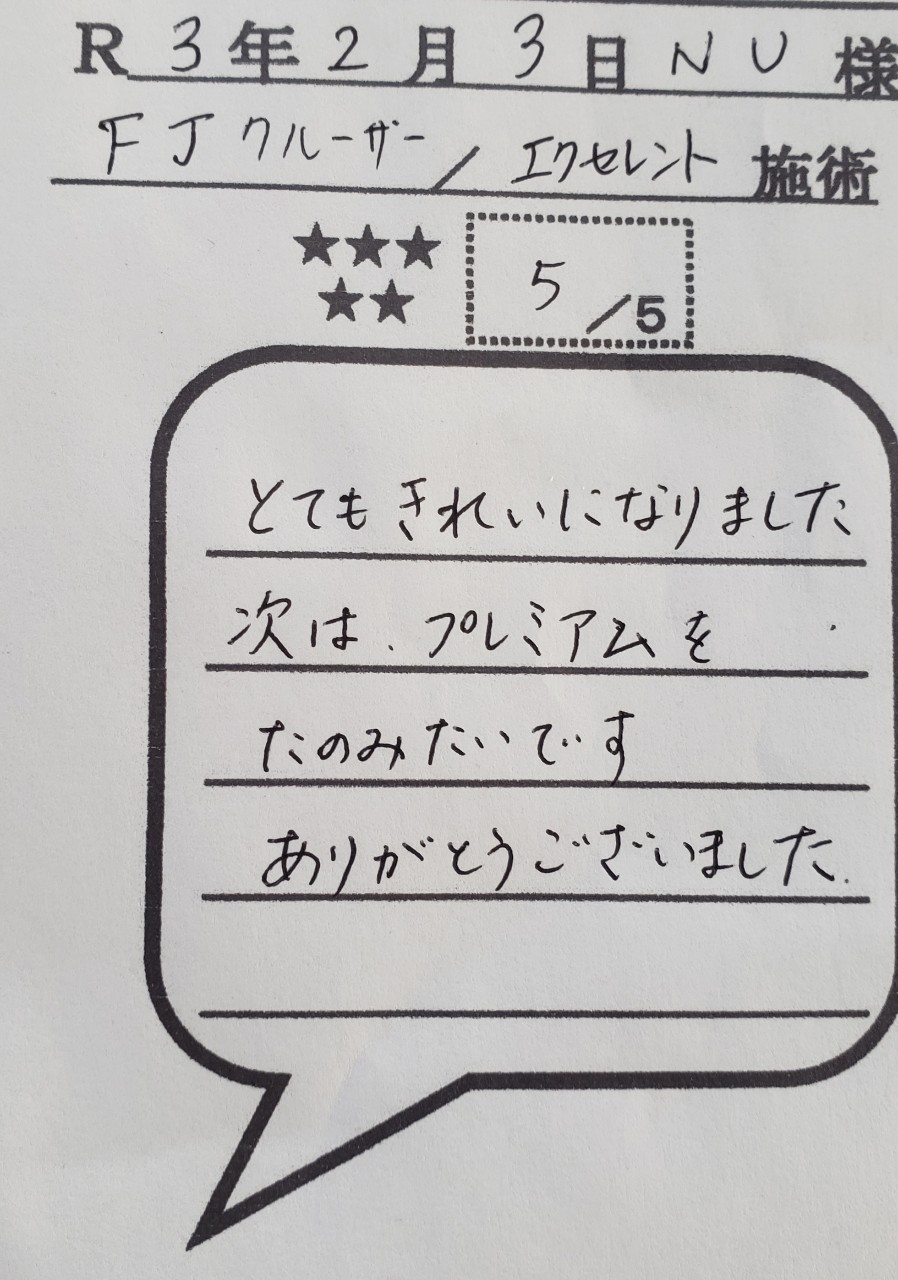 R3年2月3日NU様
FJクルーザー/エクセレント施術
★★★
★★
5/5
とてもきれいになりました
次は、プレミアムを
たのみたいです
ありがとうございました.